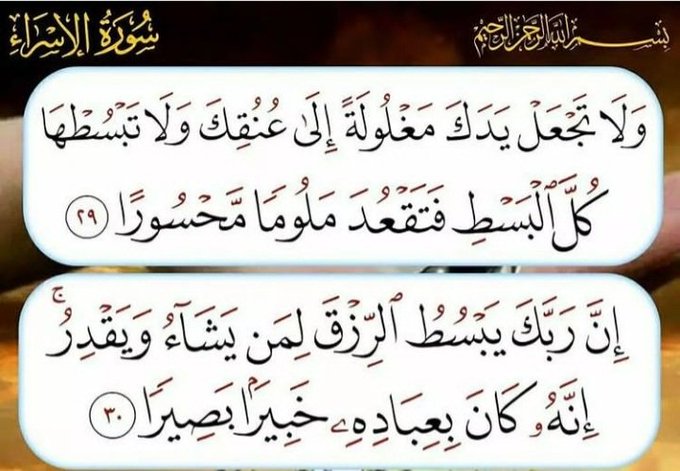 بِسْمِ اللَّهِ الرَّحْمَٰنِ الرَّحِيمِ
سُورَةُ الإِسْرَاءِ
وَلَا تَجْعَلْ يَدَكَ مَغْلُولَةً إِلَىٰ عُنُقِكَ وَلَا تَبْسُطْهَا
كُلَّ ٱلْبَسْطِ فَتَقْعُدَ مَلُومًا مَّحْسُورًا ٢٩
إِنَّ رَبَّكَ يَبْسُطُ ٱلرِّزْقَ لِمَن يَشَآءُ وَيَقْدِرُ ۚ
إِنَّهُۥ كَانَ بِعِبَادِهِۦ خَبِيرَۢا بَصِيرًا ٣٠